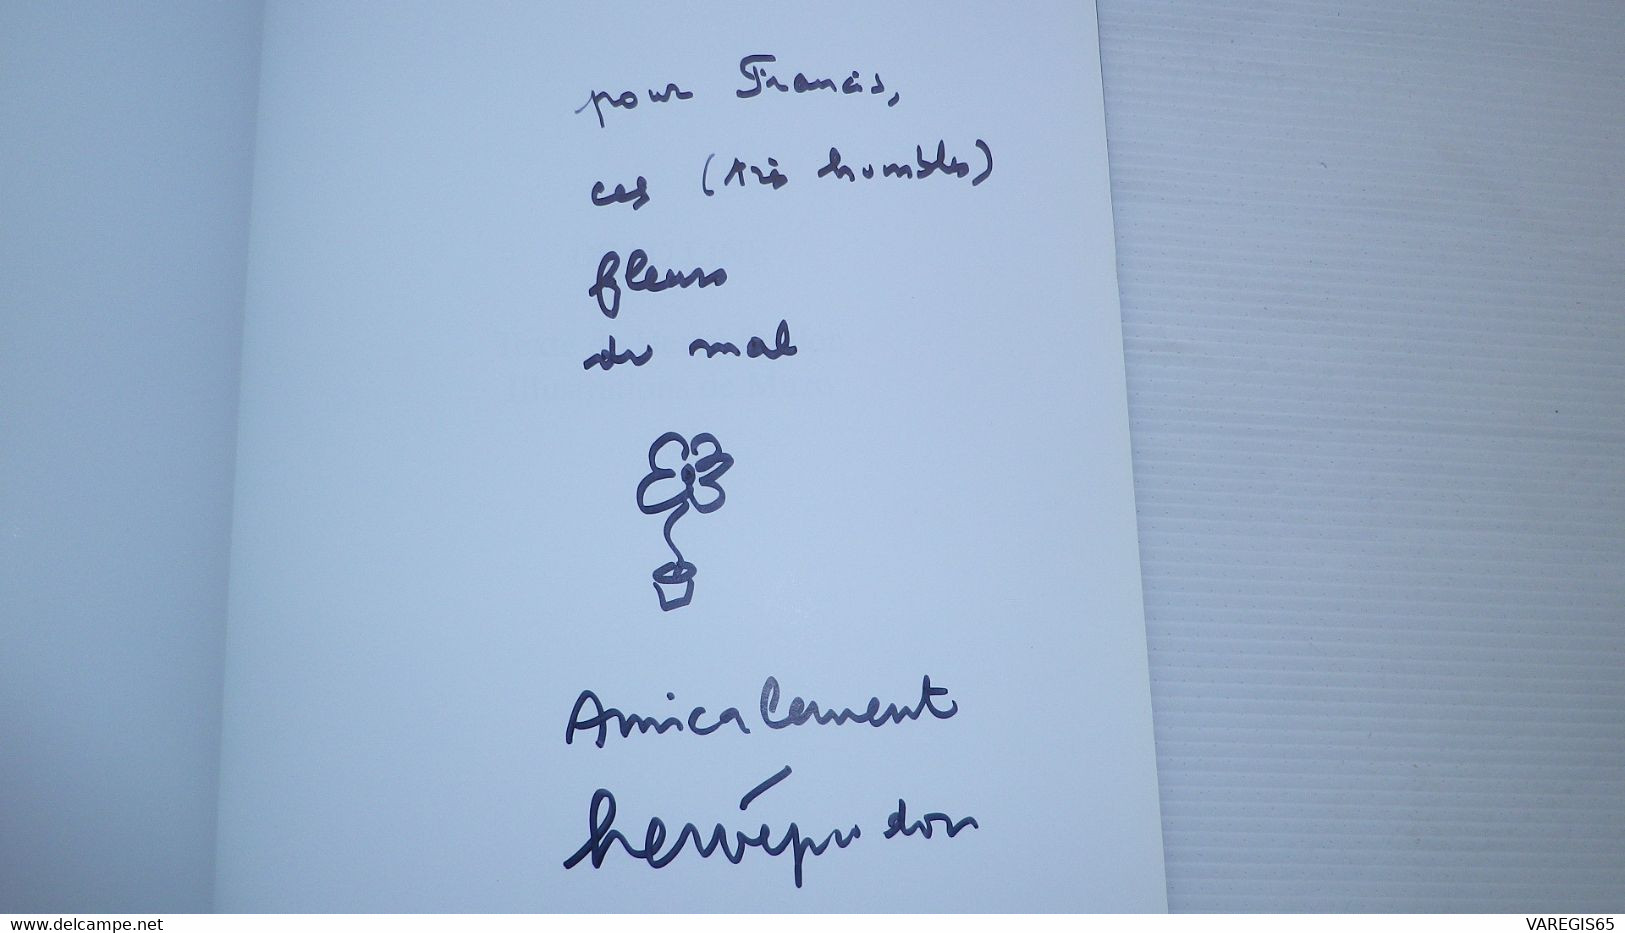 pour Francis,
ces (très humbles)
fleurs
du mal
Amicalement
hervéprudon
www.delcampe.net
VAREGIS65